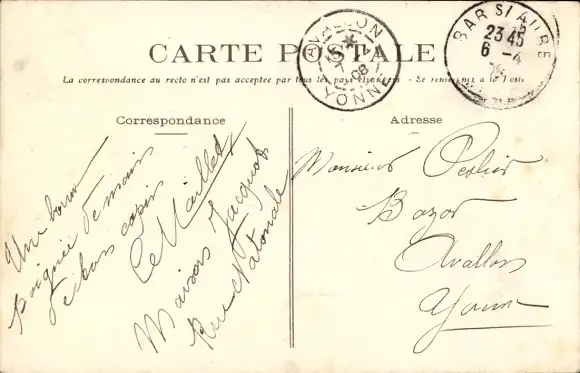 CARTE POSTALE
La correspondance au recto n'est pas acceptée par tous les pays étrangers - Se renseigner à la Poste
AVALLON
YONNE
08
BAR S/ AUBE
23 45
6 -4
Correspondance
Adresse
Une bonne
poignée de mains
Le Maillet
Maison Jacquot
Rue Nationale
Monsieur
Bazar
Avallon
Yonne